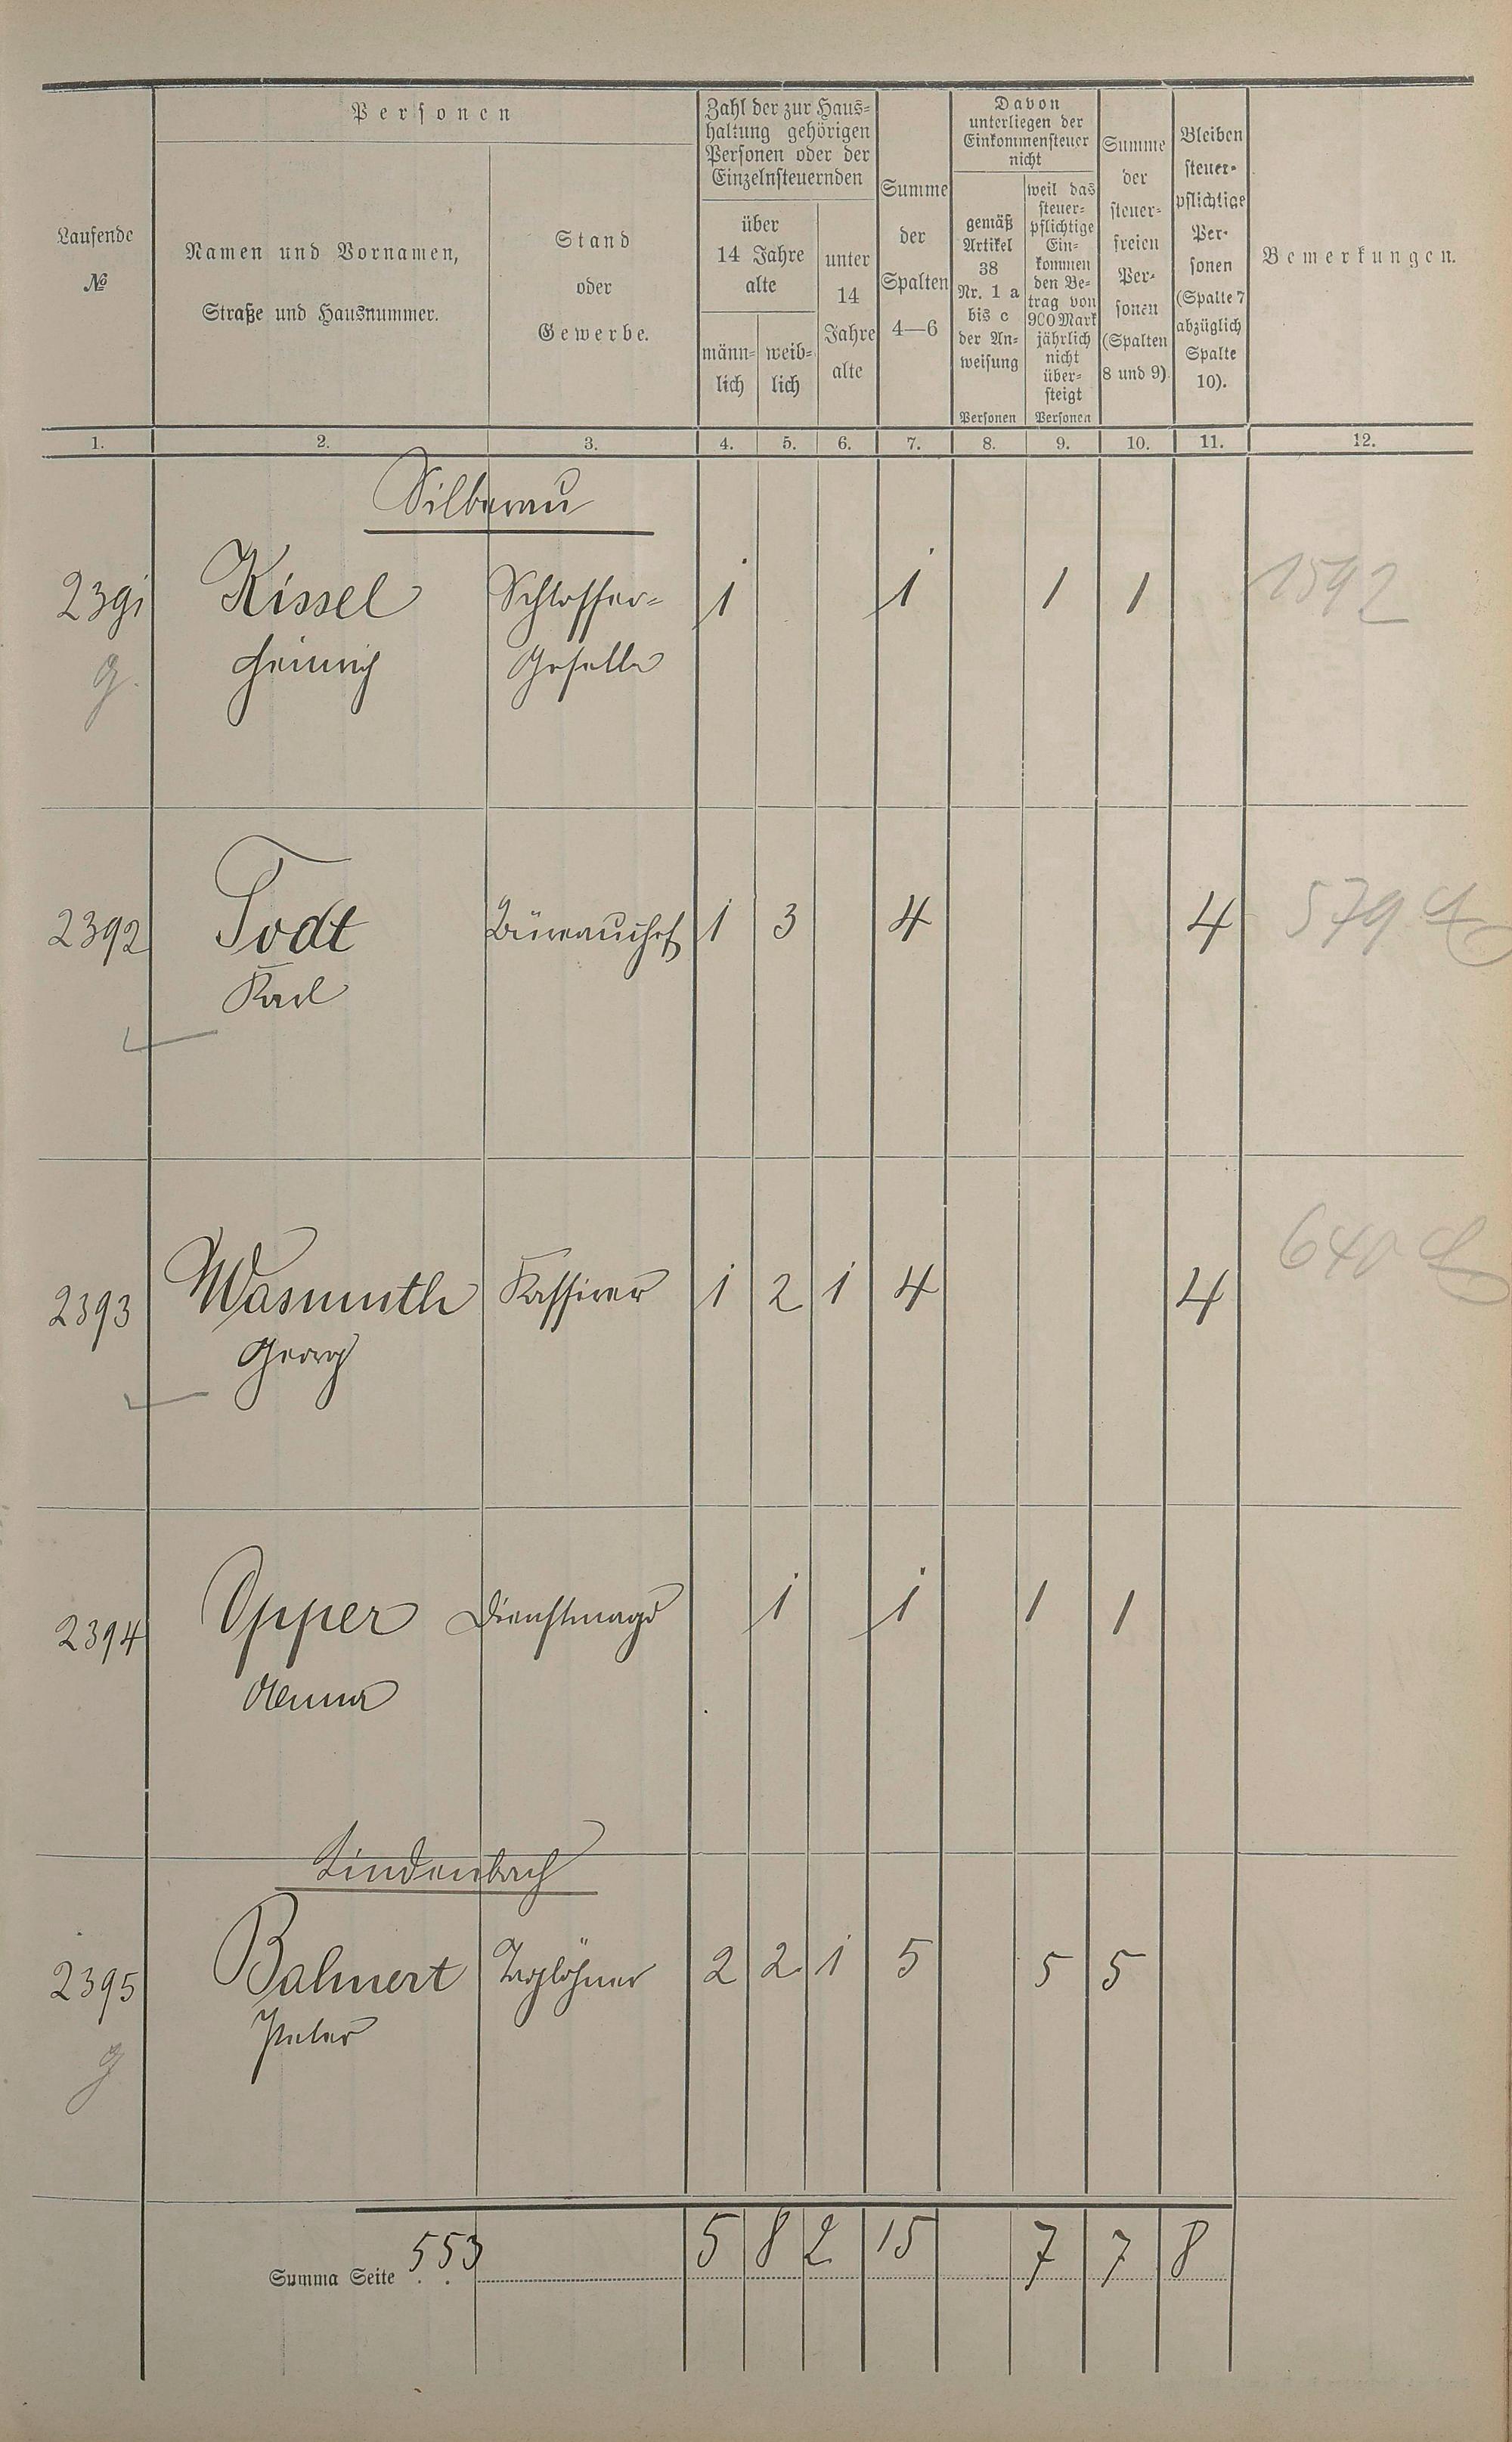 Laufende
№
Personen
Namen und Vornamen,
Straße und Hausnummer.
Stand
oder
Gewerbe.
Zahl der zur Haus-
haltung gehörigen
Personen oder der
Einzelnsteuernden
über
14 Jahre
alte
männ-
lich
weib-
lich
unter
14
Jahre
alte
Summe
der
Spalten
4—6
Davon
unterliegen der
Einkommensteuer
nicht
gemäß
Artikel
38
Nr. 1 a
bis c
der An-
weisung
Personen
weil das
steuer-
pflichtige
Ein-
kommen
den Be-
trag von
900 Mark
jährlich
nicht
über-
steigt
Personen
Summe
der
steuer-
freien
Per-
sonen
(Spalten
8 und 9)
Bleiben
steuer-
pflichtige
Per-
sonen
(Spalte 7
abzüglich
Spalte
10).
Bemerkungen.
1. 2. 3. 4. 5. 6. 7. 8. 9. 10. 11. 12.
Silberau
2391 Kissel Schlosser- 1 1 1 1 1592
g. Heinrich Geselle
2392 Todt Büreauchef 1 3 4 4 579
Karl
2393 Wasmuth Kassirer 1 2 1 4 4 640
Georg
2394 Opper Dienstmagd 1 1 1 1
Anna
Lindenbach
2395 Balmert Taglöhner 2 2 1 5 5 5
Peter
g
Summa Seite 553 5 8 2 15 7 7 8